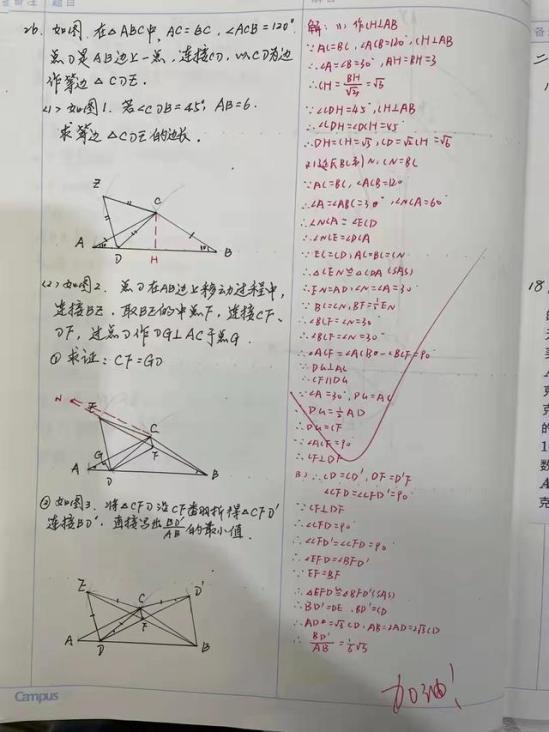 题目
26. 如图, 在△ABC中, AC=BC, ∠ACB=120°
点D是AB边上一点, 连接CD, 以CD为边
作等边△CDE
(1) 如图1. 若∠CDB=45°, AB=6.
求等边△CDE的边长.
E
C
A
D
H
B
(2) 如图2. 点D在AB边上移动过程中,
连接BE, 取BE的中点F, 连接CF、
DF, 过点D作DG⊥AC于点G.
① 求证: CF=GD
N
E
C
G
F
A
D
B
② 如图3. 将△CFD沿CF翻折得△CFD'
连接BD', 直接写出BD'/AB的最小值.
E
D'
C
F
A
D
B
Campus
解: (1) 作CH⊥AB
∵AC=BC, ∠ACB=120°, CH⊥AB
∴∠A=∠B=30°, AH=BH=3
∴CH=BH/√3=√3
∵∠CDH=45°, CH⊥AB
∴∠CDH=∠DCH=45°
∴DH=CH=√3, CD=√2CH=√6
N, CN=BC
∵AC=BC, ∠ACB=120
∴∠A=∠ABC=30°, ∠NCA=60°
∴∠NCA=∠ECD
∴∠NCE=∠DCA
∵EC=CD, AC=BC=CN
∴△CEN≌△CDA (SAS)
∴EN=AD, ∠N=∠A=30°
∵BC=CN, BF=½EN
∴∠BCF=∠N=30
∴∠BCF=∠N=30°
∴∠ACF=∠ACB-∠BCF=90°
∵DG⊥AC
∴CF∥DG
∵∠A=30°, DG⊥AC
∴DG=½AD
∴DG=CF
∵∠ACF=90°
∴CF⊥DF
∴CD=CD', DF=D'F
∠CFD=∠CFD'=90°
∵CF⊥DF
∴∠CFD=90°
∴∠CFD'=∠CFD=90°
∴∠EFD=∠BFD'
∵EF=BF
∴△EFD≌△BFD' (SAS)
∴BD'=DE, BD'=CD
∴BD'/AB=⅙√3
加油!
18.